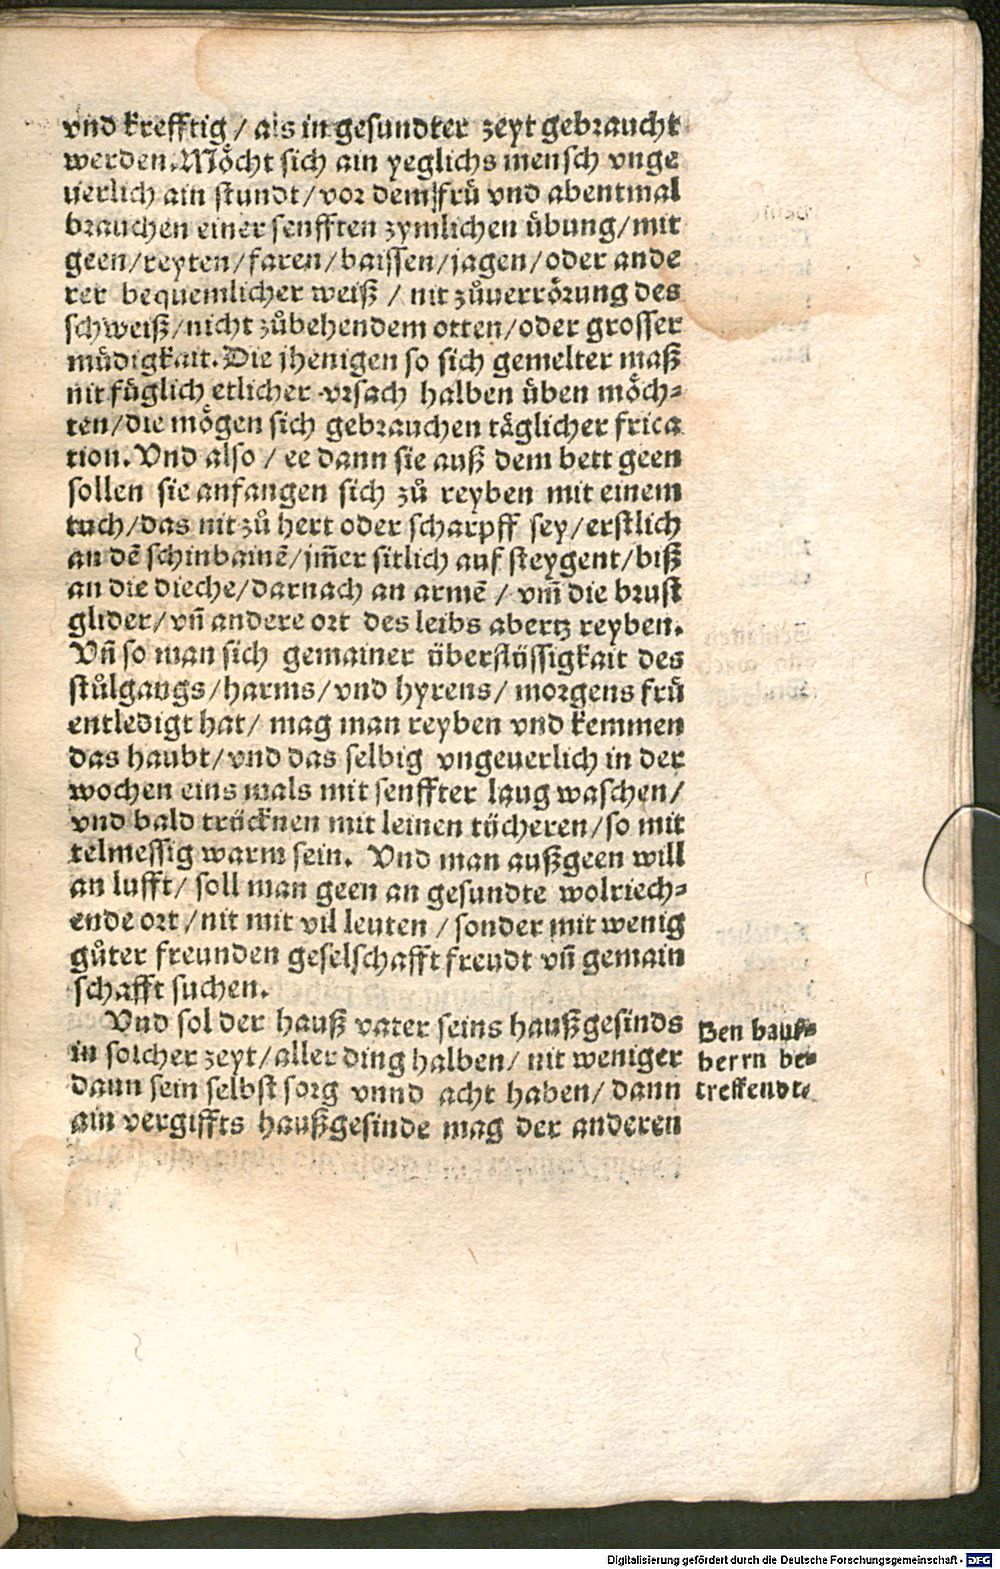 vnd krefftig / als in gesundter zeyt gebraucht
werden. Mo᷑cht sich ain yeglichs mensch vnge
uerlich ain stundt / vor dem frü vnd abentmal
brauchen einer senfften zymlichen übung / mit
geen / reyten / faren / baissen / jagen / oder ande
rer bequemlicher weiß / nit zůuerrörung des
schweiß / nicht zůbehendem otten / oder grosser
müdigkait. Die jhenigen so sich gemelter maß
nit füglich etlicher vrsach halben üben möch-
ten / die mögen sich gebrauchen täglicher frica
tion. Vnd also / ee dann sie auß dem bett geen
sollen sie anfangen sich zů reyben mit einem
tuch / das nit zů hert oder scharpff sey / erstlich
an dẽ schinbainẽ / jm̃er sitlich auf steygent / biß
an die dieche / darnach an armẽ / vm̃ die brust
glider / vñ andere ort des leibs abertz reyben.
Vñ so man sich gemainer überflüssigkait des
stůlgangs / harms / vnd hyrens / morgens frü
entledigt hat / mag man reyben vnd kemmen
das haubt / vnd das selbig vngeuerlich in der
wochen eins mals mit senffter laug waschen /
vnd bald trücknen mit leinen tücheren / so mit
telmessig warm sein. Vnd man außgeen will
an lufft / soll man geen an gesundte wolriech-
ende ort / nit mit vil leuten / sonder mit wenig
gůter freunden geselschafft freudt vñ gemain
schafft suchen.
Vnd sol der hauß vater seins haußgesinds
in solcher zeyt / aller ding halben / nit weniger
dann sein selbst sorg vnnd acht haben / dann
ain vergiffts haußgesinde mag der anderen
Den hauß-
herrn be-
treffendt.
Digitalisierung gefördert durch die Deutsche Forschungsgemeinschaft - DFG